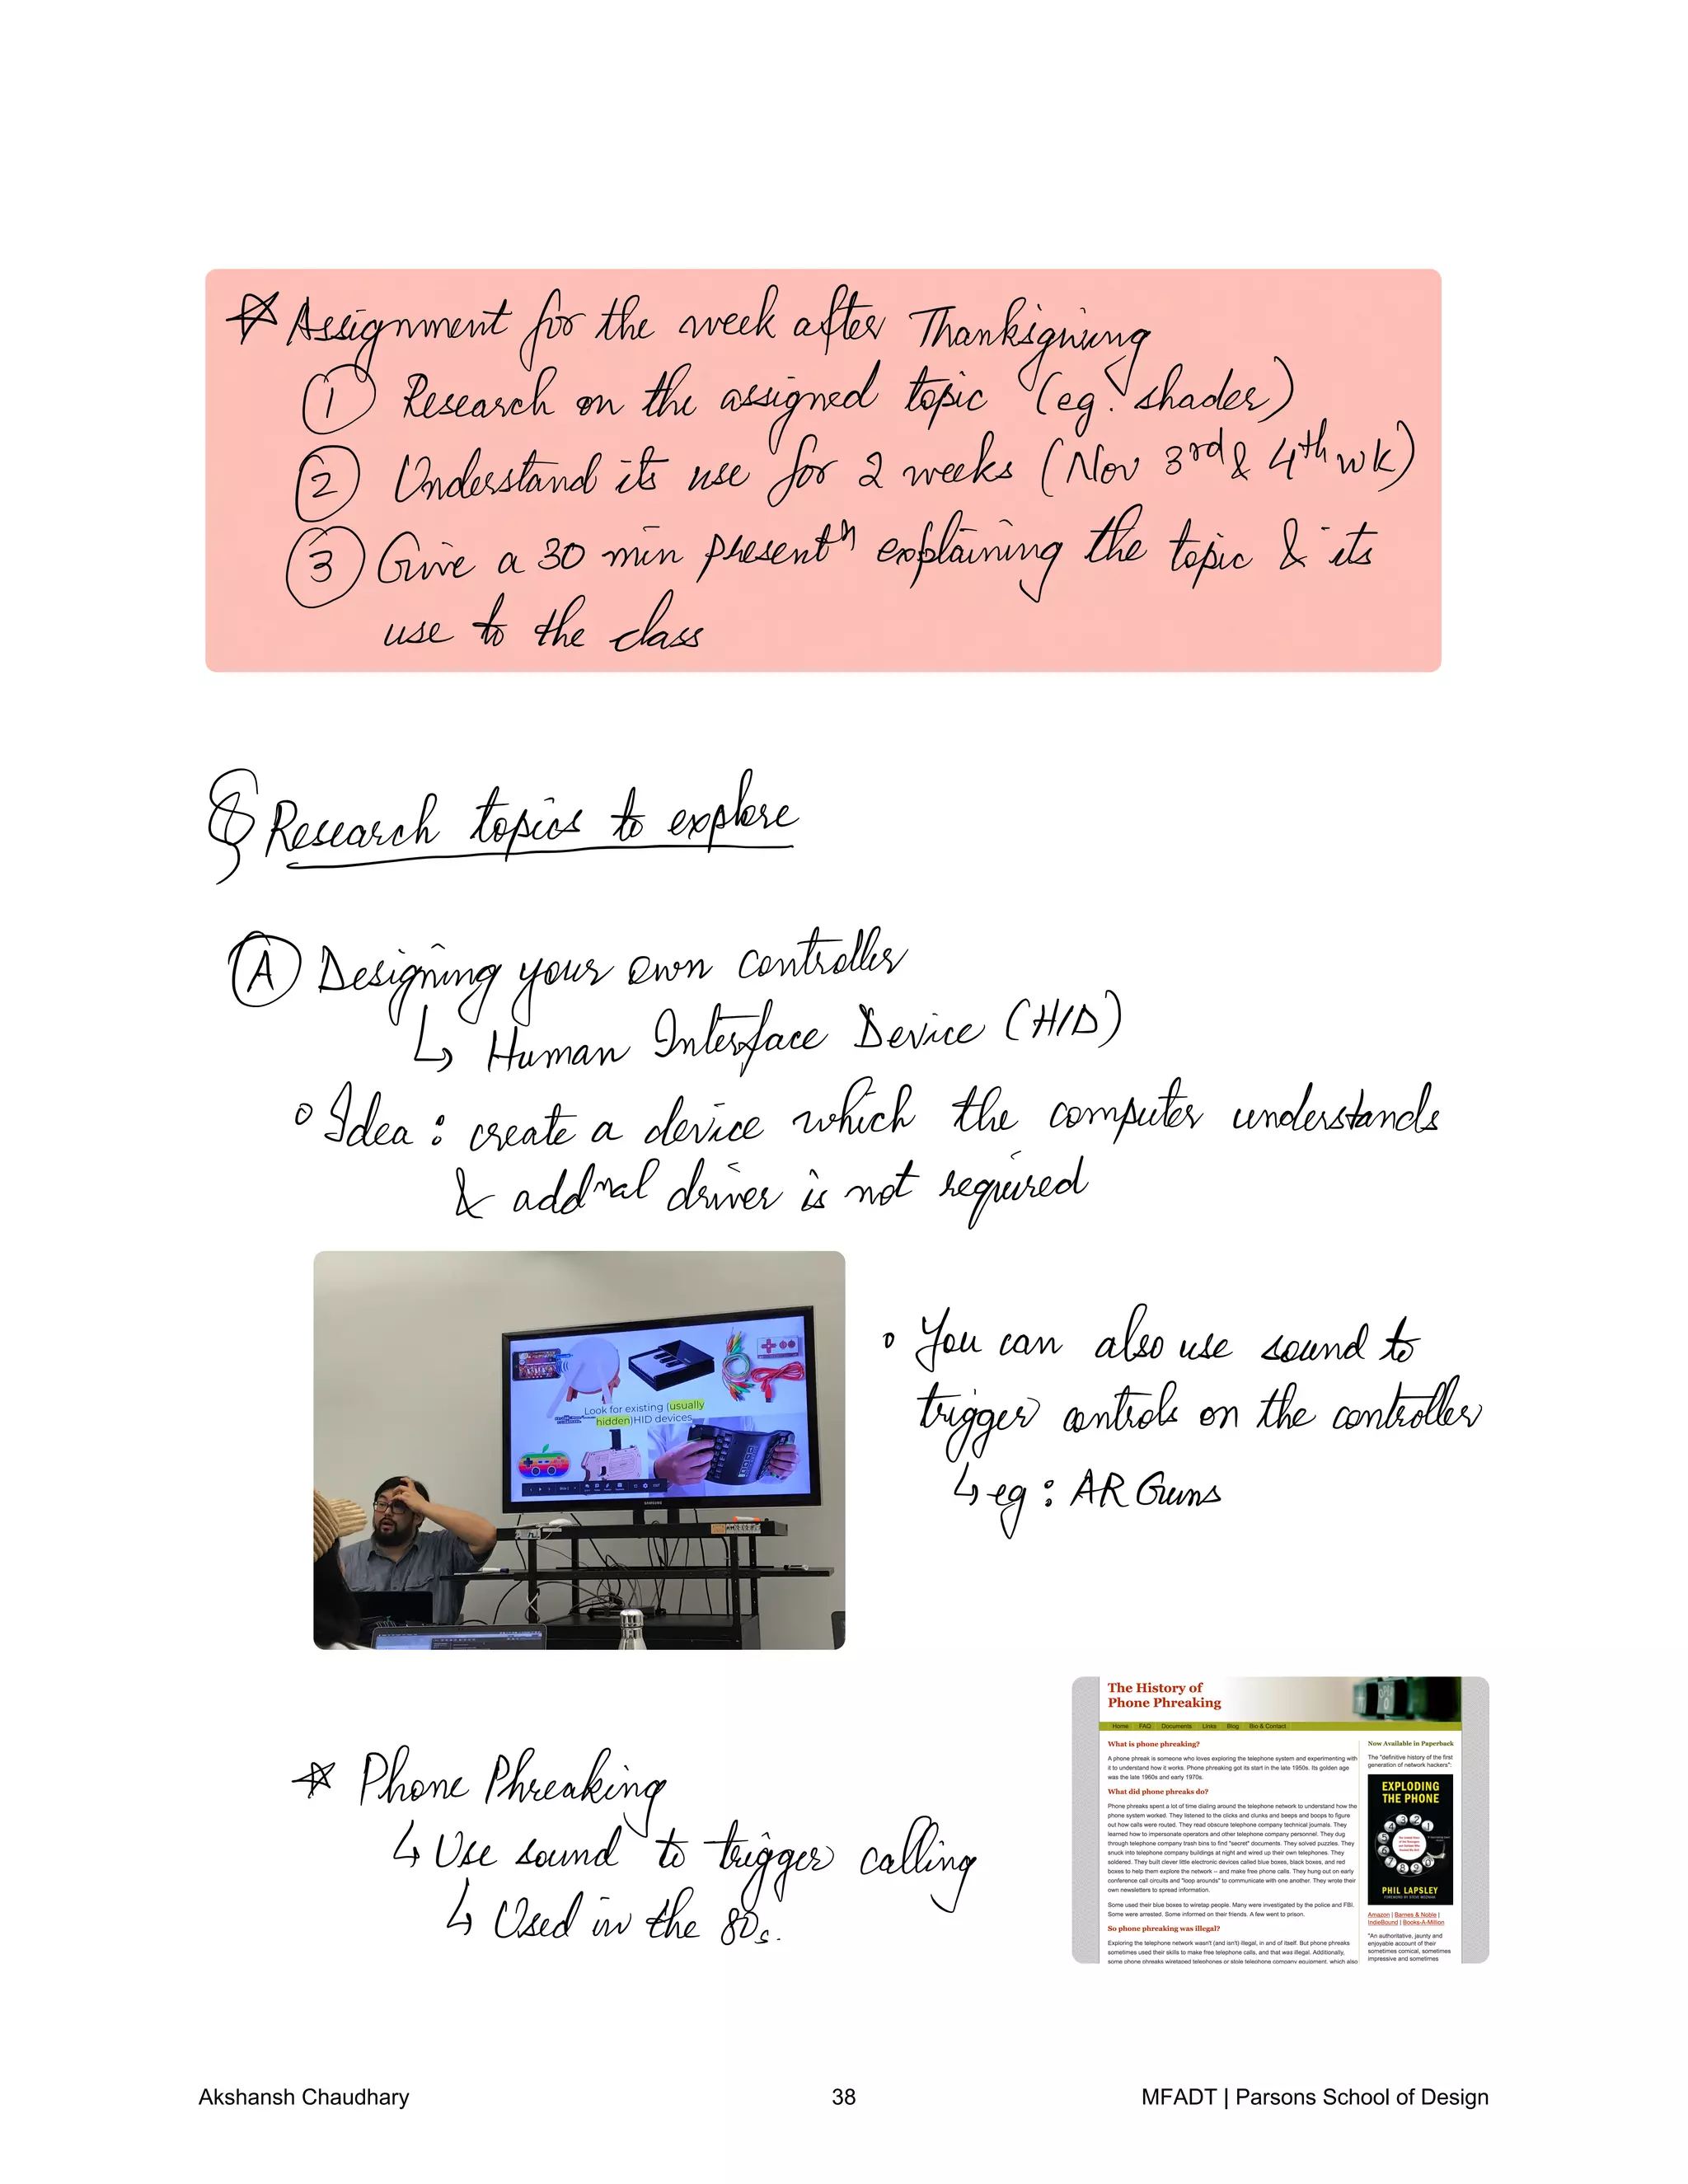 ☆ Assignment for the week after Thanksgiving
① Research on the assigned topic (eg: shader)
② Understand its use for 2 weeks (Nov 3rd & 4th wk)
③ Give a 30 min presentn explaining the topic & its
use to the class
§ Research topics to explore
Ⓐ Designing your own controller
↳ Human Interface Device (HID)
° Idea : create a device which the computer understands
& addnal driver is not required
Look for existing (usually
hidden)HID devices
SAMSUNG
° You can also use sound to
trigger controls on the controller
↳ eg : AR Guns
The History of
Phone Phreaking
Home FAQ Documents Links Blog Bio & Contact
What is phone phreaking?
A phone phreak is someone who loves exploring the telephone system and experimenting with
it to understand how it works. Phone phreaking got its start in the late 1950s. Its golden age
was the late 1960s and early 1970s.
What did phone phreaks do?
Phone phreaks spent a lot of time dialing around the telephone network to understand how the
phone system worked. They listened to the clicks and clunks and beeps and boops to figure
out how calls were routed. They read obscure telephone company technical journals. They
learned how to impersonate operators and other telephone company personnel. They dug
through telephone company trash bins to find "secret" documents. They solved puzzles. They
snuck into telephone company buildings at night and wired up their own telephones. They
soldered. They built clever little electronic devices called blue boxes, black boxes, and red
boxes to help them explore the network -- and make free phone calls. They hung out on early
conference call circuits and "loop arounds" to communicate with one another. They wrote their
own newsletters to spread information.
Some used their blue boxes to wiretap people. Many were investigated by the police and FBI.
Some were arrested. Some informed on their friends. A few went to prison.
So phone phreaking was illegal?
Exploring the telephone network wasn't (and isn't) illegal, in and of itself. But phone phreaks
sometimes used their skills to make free telephone calls, and that was illegal. Additionally,
some phone phreaks wiretapped telephones or stole telephone company equipment, which also
Now Available in Paperback
The "definitive history of the first
generation of network hackers":
EXPLODING
THE PHONE
PHIL LAPSLEY
Amazon | Barnes & Noble |
IndieBound | Books-A-Million
"An authoritative, jaunty and
enjoyable account of their
sometimes comical, sometimes
impressive and sometimes
☆ Phone Phreaking
↳ Use sound to trigger calling
↳ Used in the 80s.
Akshansh Chaudhary 38 MFADT | Parsons School of Design